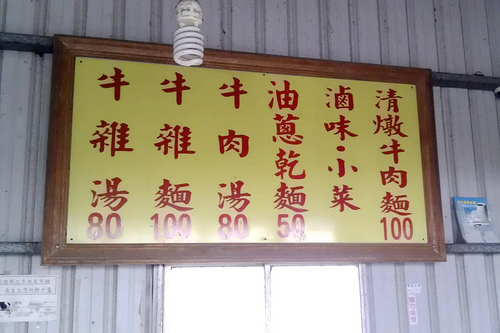 清燉牛肉麵 100
滷味·小菜
油蔥乾麵 50
牛肉湯 80
牛雜麵 100
牛雜湯 80